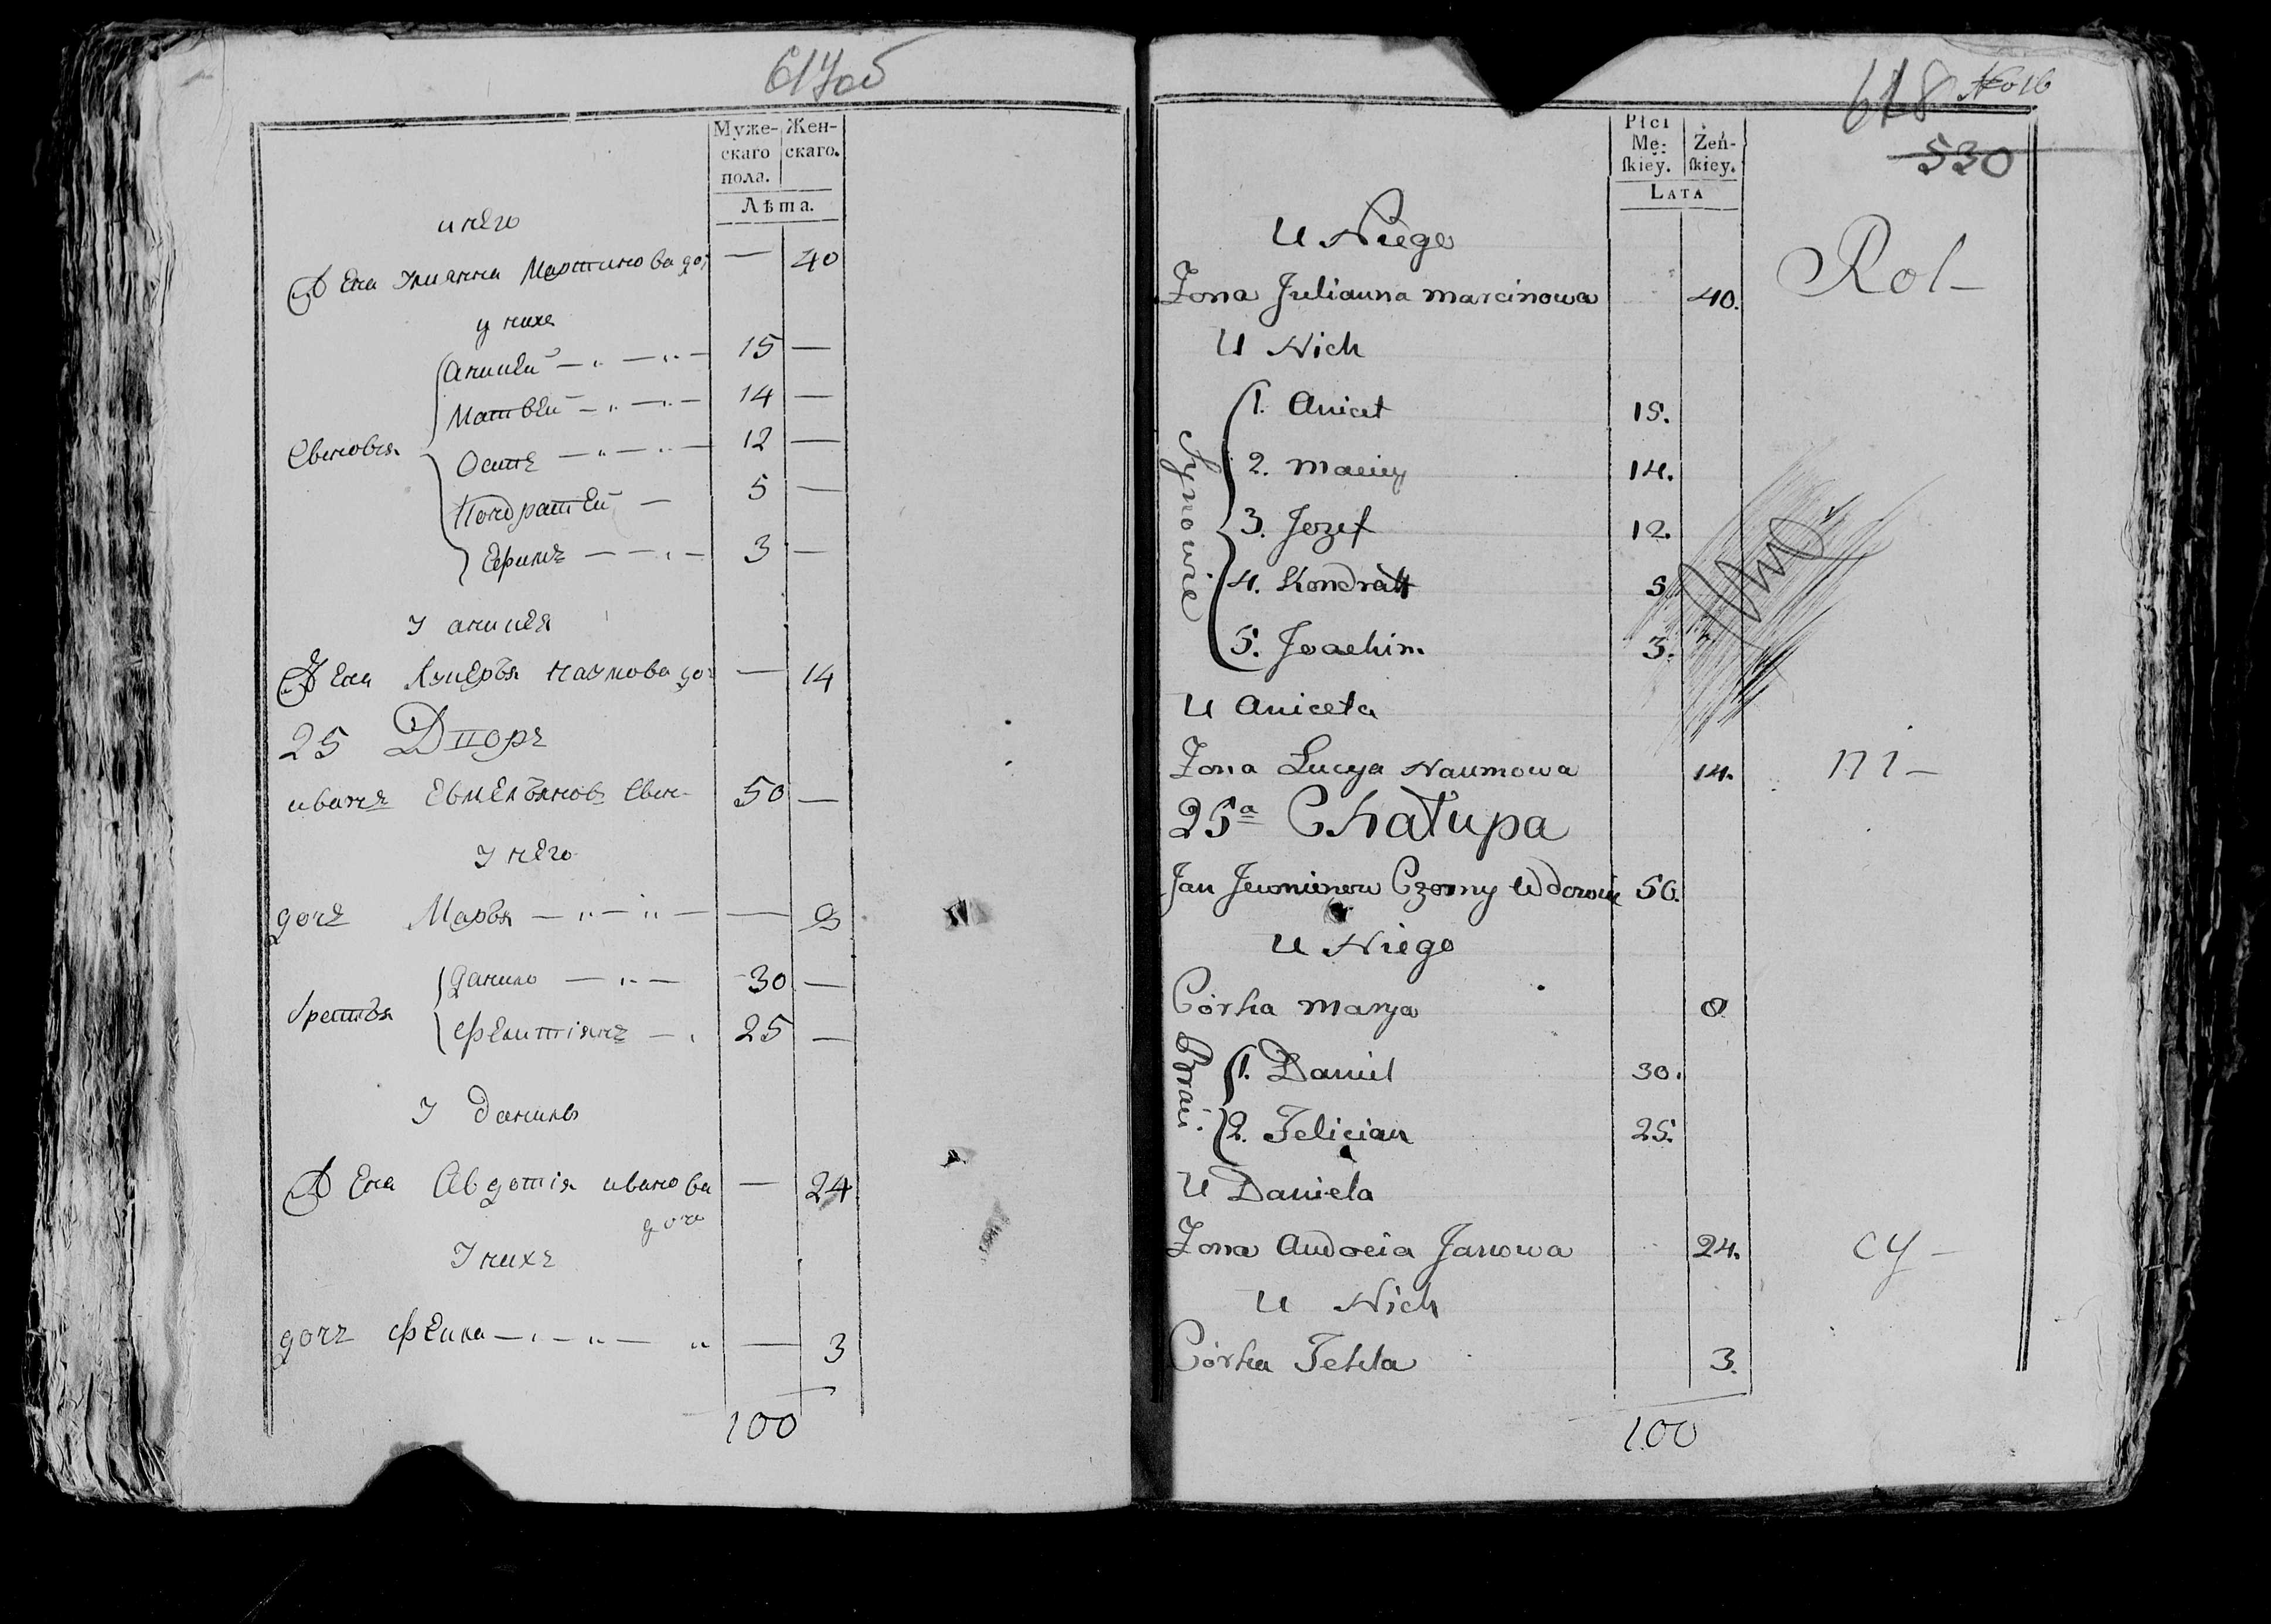 617об
Муже-
скаго
пола.
Жен-
скаго.
Лѣта.
у него
Жена Улианна Мартинова доч — 40
у нихъ
Сыновья
Аницей 15 —
Матвей 14 —
Осипъ 12 —
Кондратей 5 —
Ефимъ 3 —
У аницея
Жена Луцеръя наумова доч — 14
25 Дворъ
иванъ Евмельянов 50 —
У него
дочъ Маръя — 8
братья
данило 30 —
Фелитіянъ 25 —
У данилы
Жена Авдотія иванова — 24
доч
У нихъ
дочъ Фекла — 3
100
618 No 16
530
Płci
Mę-
skiey.
Żeń-
skiey.
LATA
U Niego
Żona Julianna Marcinowa 40.
Rol-
U Nich
Synowie
1. Anicet 15.
2. Maciey 14.
3. Jozef 12.
4. Kondratt 5
5. Joachim 3.
U Aniceta
Żona Lucya Naumowa 14.
ni-
25a Chałupa
Jan Czorny Wdowiec 50.
U Niego
Córka Marya 8
Bracia
1. Daniel 30.
2. Felician 25.
U Daniela
Żona Audocia Janowa 24.
cy-
U Nich
Córka Tekla 3.
100